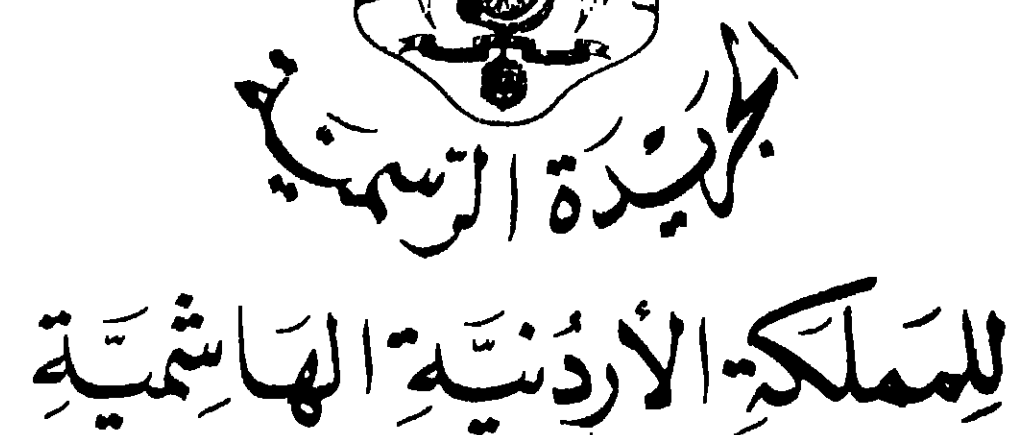 الجَريدَة الرّسميَّة
لِلمَملَكَةِ الأُردُنيَّةِ الهَاشِميَّةِ